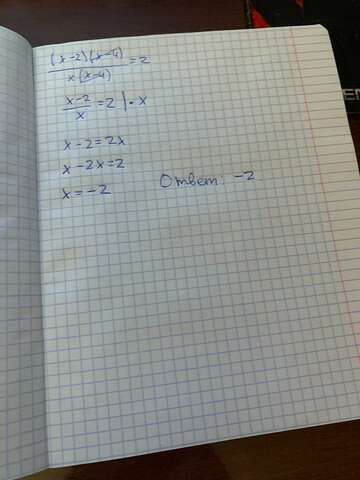 (x-2)(x-4)/x(x-4)=2
x-2/x=2|•x
x-2=2x
x-2x=2
x=-2
Ответ: -2
EN